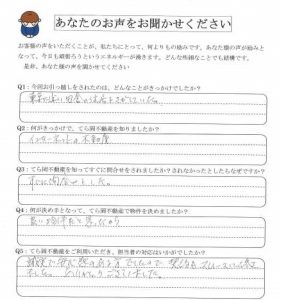 あなたのお声をお聞かせください
お客様の声をいただくことが、私たちにとって、何よりもの励みです。あなた様の励みと
なって、今日も頑張ろうというエネルギーが湧きます。どんな些細なことでも結構です。
是非、あなた様の声を聞かせてください
Q1：今回お引っ越しをされたのは、どんなことがきっかけでしたか？
Q2：何がきっかけで、てら岡不動産を知りましたか？
インターネットの不動産
Q3：てら岡不動産を知ってすぐに問合せをされましたか？されなかったとしたらなぜですか？
すぐに問合せました。
Q4：何が決め手となって、てら岡不動産で物件を決めましたか？
良い物件だと思ったから
Q5：てら岡不動産をご利用いただき、担当者の対応はいかがでしたか？
ありがとうございました。